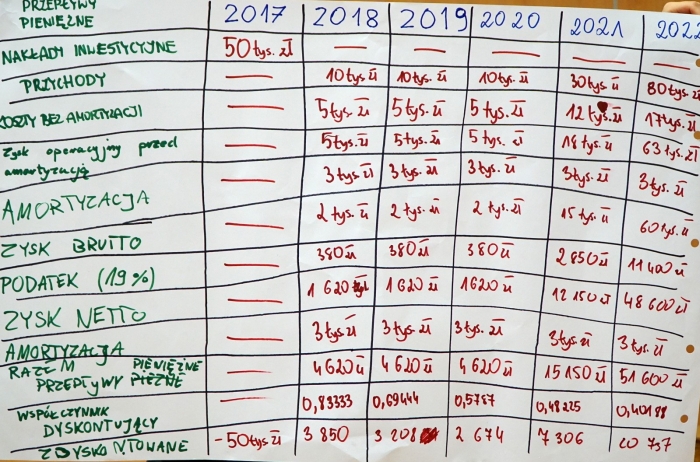 PRZEPŁYWY
PIENIĘŻNE 2017 2018 2019 2020 2021 2022
NAKŁADY INWESTYCYJNE 50 tys. zł — — — — —
PRZYCHODY — 10 tys zł 10 tys. zł 10 tys. zł 30 tys. zł 80 tys. zł
KOSZTY BEZ AMORTYZACJI — 5 tys. zł 5 tys. zł 5 tys. zł 12 tys. zł 17 tys. zł
Zysk operacyjny przed
amortyzacją — 5 tys. zł 5 tys. zł 5 tys. zł 18 tys. zł 63 tys. zł
AMORTYZACJA — 3 tys. zł 3 tys. zł 3 tys. zł 3 tys. zł 3 tys. zł
ZYSK BRUTTO — 2 tys. zł 2 tys. zł 2 tys. zł 15 tys. zł 60 tys. zł
PODATEK (19%) — 380 zł 380 zł 380 zł 2 850 zł 11 400 zł
ZYSK NETTO — 1 620 zł 1 620 zł 1620 zł 12 150 zł 48 600 zł
AMORTYZACJA — 3 tys. zł 3 tys. zł 3 tys. zł 3 tys. zł 3 tys. zł
RAZEM PIENIĘŻNE
PRZEPŁYWY — 4 620 zł 4 620 zł 4 620 zł 15 150 zł 51 600 zł
WSPÓŁCZYNNIK
DYSKONTUJĄCY — 0,83333 0,69444 0,5787 0,48225 0,40188
ZDYSKONTOWANE -50 tys zł 3 850 3 208 2 674 7 306 20 737